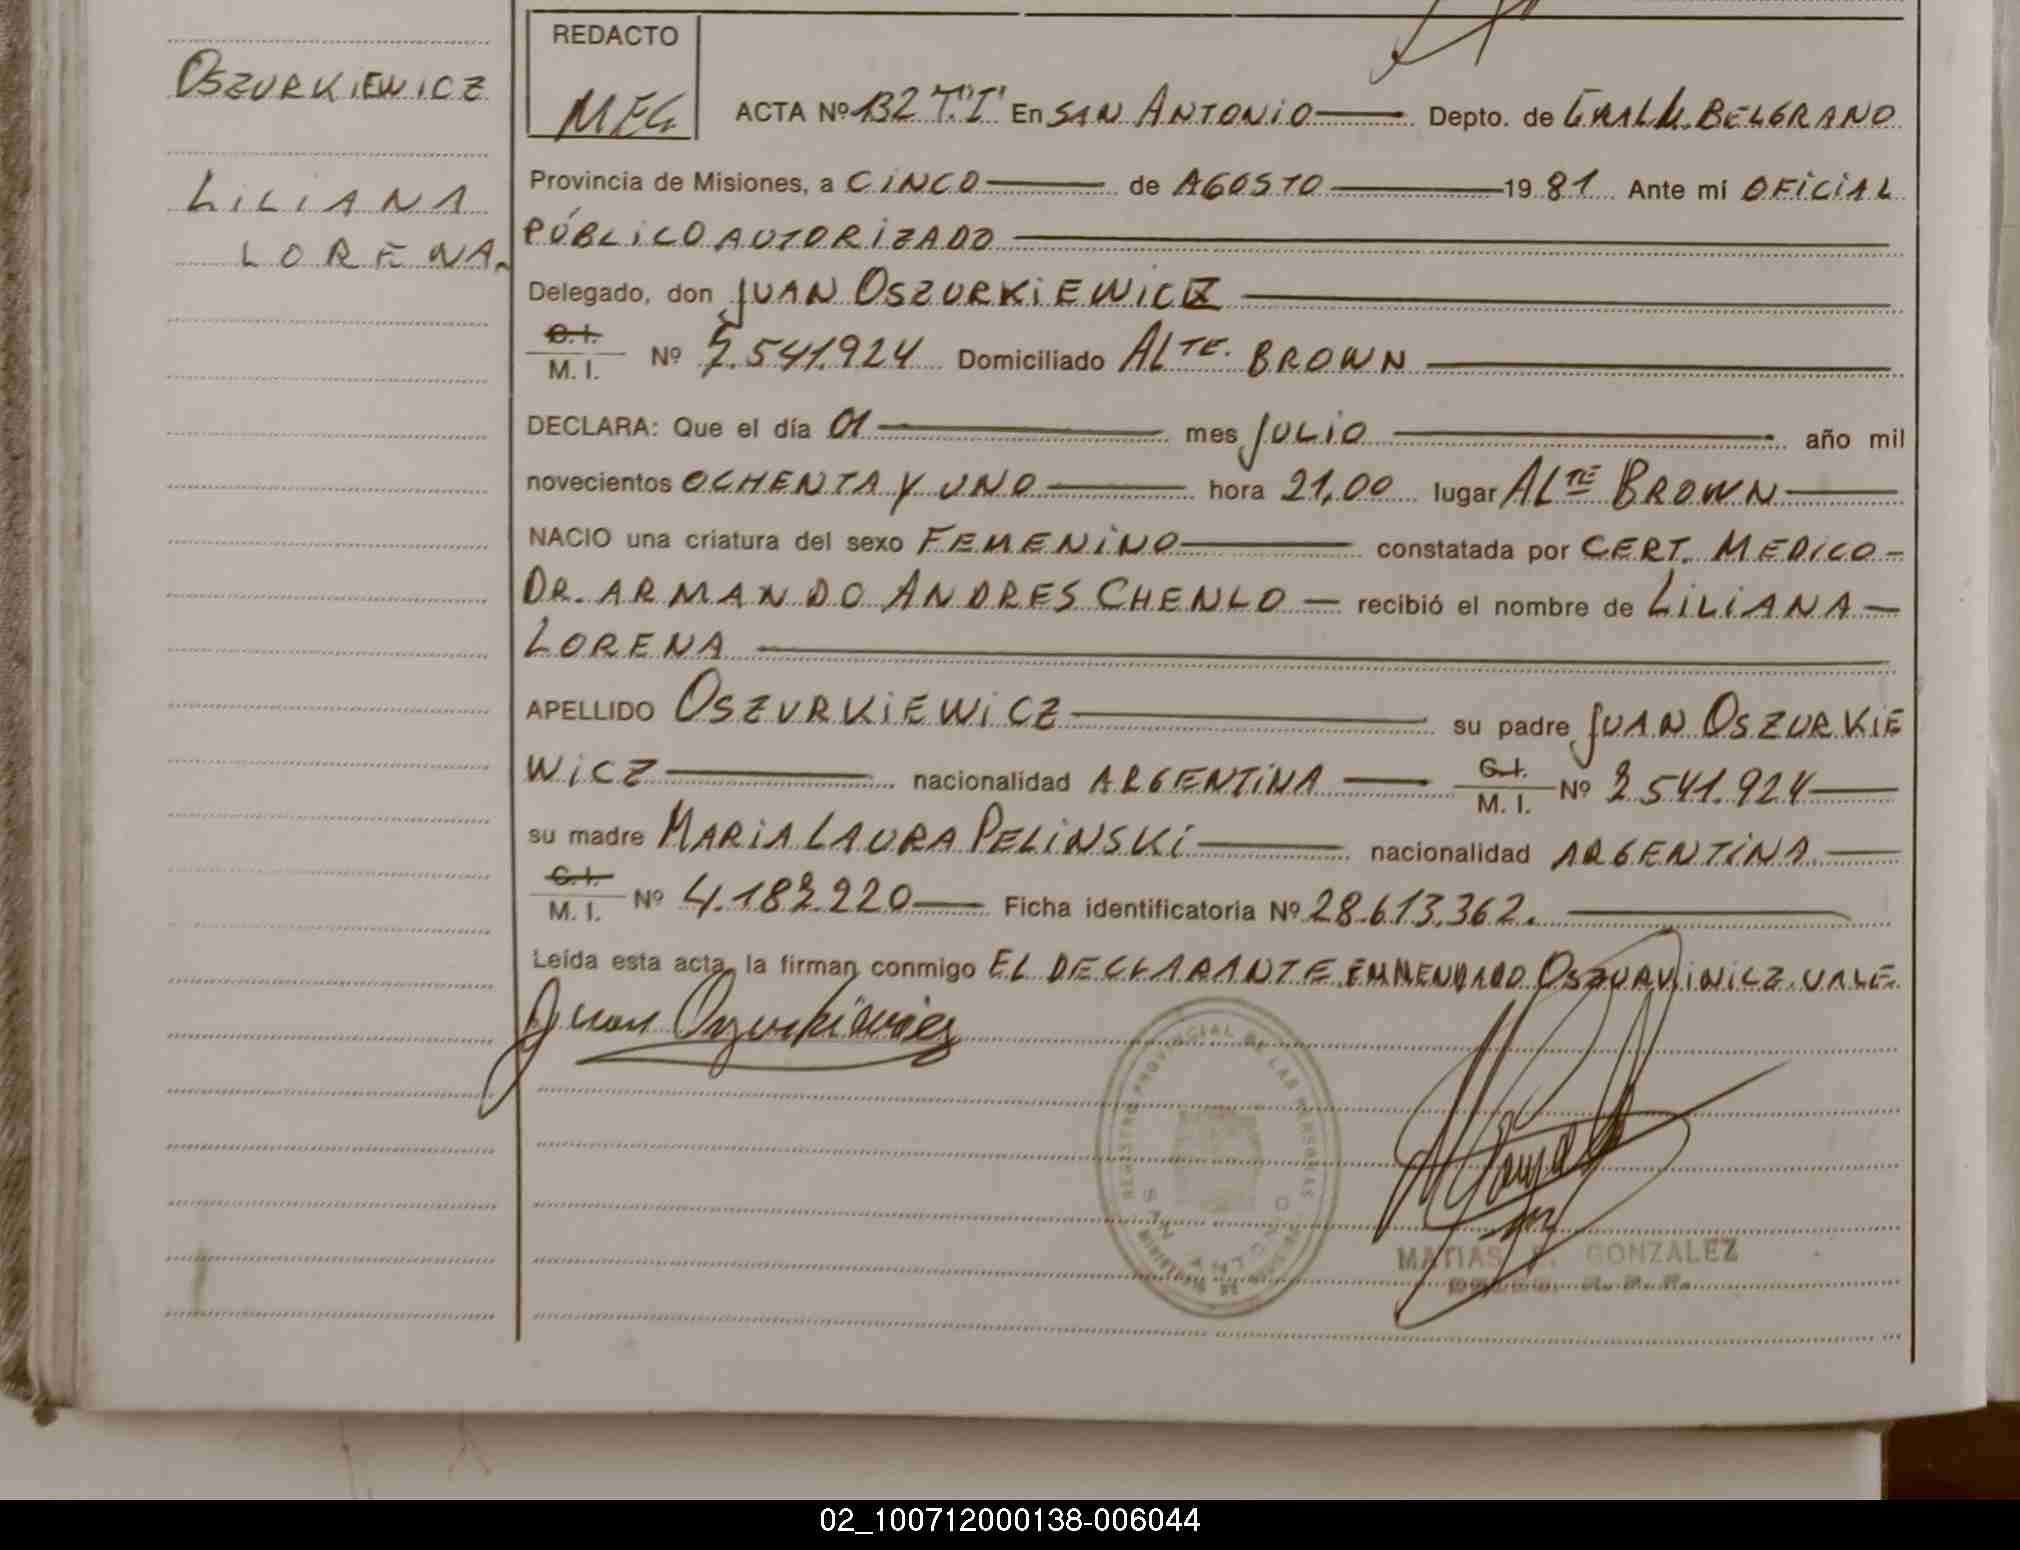 OSZURKIEWICZ
LILIANA
LORENA
REDACTO
MEG
ACTA Nº 132 T."I" En SAN ANTONIO Depto. de GRAL M. BELGRANO
Provincia de Misiones, a CINCO de AGOSTO 1981 Ante mí OFICIAL
PÚBLICO AUTORIZADO
Delegado, don JUAN OSZURKIEWICZ
C. I.
M. I. Nº 7.541.924 Domiciliado ALTE. BROWN
DECLARA: Que el día 01 mes JULIO año mil
novecientos OCHENTA Y UNO hora 21,00 lugar ALTE BROWN
NACIO una criatura del sexo FEMENINO constatada por CERT. MEDICO
DR. ARMANDO ANDRES CHENLO recibió el nombre de LILIANA
LORENA
APELLIDO OSZURKIEWICZ su padre JUAN OSZURKIE
WICZ nacionalidad ARGENTINA C. I. M. I. Nº 541.924
su madre MARIA LAURA PELINSKI nacionalidad ARGENTINA
C. I.
M. I. Nº 4.182.220 Ficha identificatoria Nº 28.613.362.
Leída esta acta, la firman conmigo EL DECLARANTE. ENMENDADO VALE.
Juan
REGISTRO PROVINCIAL DE LAS PERSONAS
SAN ANTONIO
MATIAS GONZALEZ
02_100712000138-006044